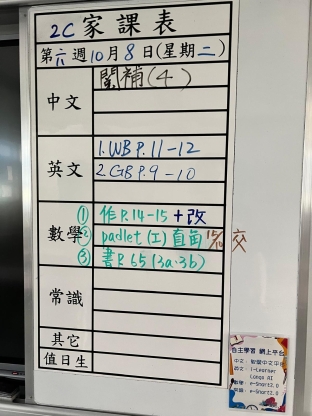 2C 家課表
第六週10月8日(星期二)
中文 閱補(4)
英文 1.WB P.11-12
2.GB P.9-10
數學 ① 作P.14-15 +改
② padlet (I) 直角 15/10 交
③ 書P.65 (3a.3b)
常識
其它
值日生
自主學習 網上平台
i-Learner
e-Smart2.0
e-Smart2.0